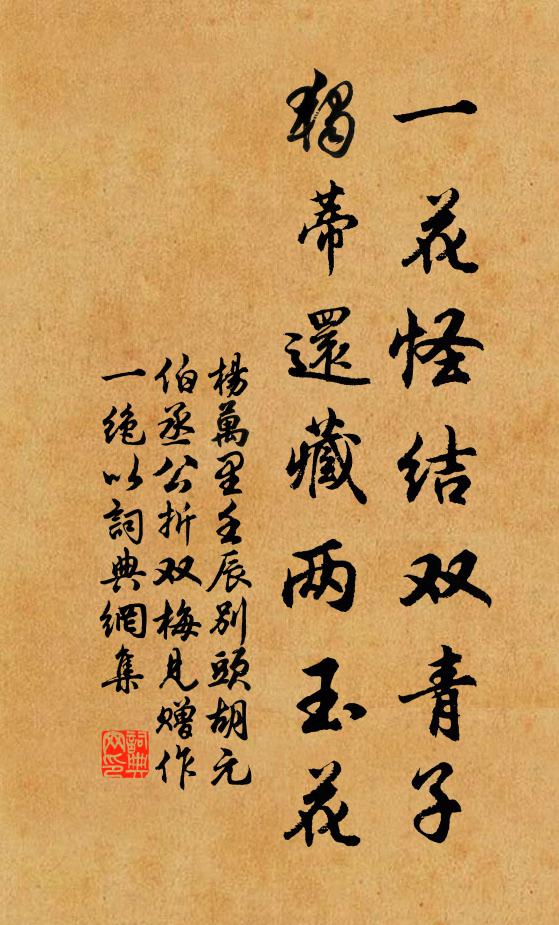 一花怪结双青子
独蒂還藏两玉花
楊萬里壬辰别頭胡元
伯丞公折双梅見赠作
一绝以詞典網集
詞典網印